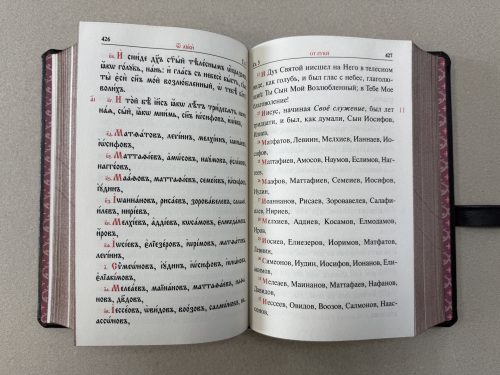 426
И сни́де дх҃ъ ст҃ы́й тѣле́снымъ ѡ҆́бразомъ,
ꙗ҆́кѡ го́лꙋбь, на́нь: и҆ гла́съ съ небесѐ бы́сть,
ты̀ є҆сѝ сн҃ъ мо́й возлю́бленный, ѡ҆ тебѣ̀ бл҃го-
воли́хъ.
И то́й бѣ̀ і҆и҃съ ꙗ҆́кѡ лѣ́тъ три́десѧть
сы́й, ꙗ҆́кѡ мни́мь, сн҃ъ
і҆ѡ́сифовъ,
Матѳа́товъ, леѵі́инъ, мелхі́инъ,
Маттаѳі́евъ, а҆мѡ́совъ, наꙋ́мовъ,
Маа́ѳовъ, маттаѳі́евъ, семеі́евъ, і҆ѡ́сифовъ,
і҆ꙋ́динъ,
І҆ѡанна́новъ, риса́евъ, зорова́велевъ,
Мелхі́евъ, а҆ддíевъ, кѡса́мовъ,
І҆ѡсі́евъ, є҆лїезе́ровъ, і҆ѡрі́мовъ, матѳа́товъ,
леѵі́инъ,
Сѷмеѡ́новъ, і҆ꙋ́динъ, і҆ѡ́сифовъ,
Мелеа́евъ, маїна́новъ, маттаѳа́евъ,
дв҃довъ,
І҆ессе́овъ, ѡ҆ви́довъ, воо́зовъ,
427
ОТ ЛУКИ
Гл. 3
22 И Дух Святой нисшел на Него в телесном
виде, как голубь, и был глас с небес, глаголю-
щий: Ты Сын Мой Возлюбленный; в Тебе Мое
благоволение!
23 Иисус, начиная Своё служение, был лет
тридцати, и был, как думали, Сын Иосифов,
Илиев,
24 Матфатов, Левиин, Мелхиев, Ианнаев, Ио-
сифов,
25 Маттафиев, Амосов, Наумов, Еслимов, Наг-
геев,
26 Маафов, Маттафиев, Семеиев, Иосифов,
Иудин,
27 Иоаннанов, Рисаев, Зоровавелев, Салафи-
илев, Нириев,
28 Мелхиев, Аддиев, Косамов, Елмодамов,
Иров,
29 Иосиев, Елиезеров, Иоримов, Матфатов,
Левиин,
30 Симеонов, Иудин, Иосифов, Ионанов, Ели-
акимов,
31 Мелеаев, Маинанов, Маттафаев, Нафанов,
Давидов,
32 Иессеев, Овидов, Воозов, Салмонов, Наас-
сонов,